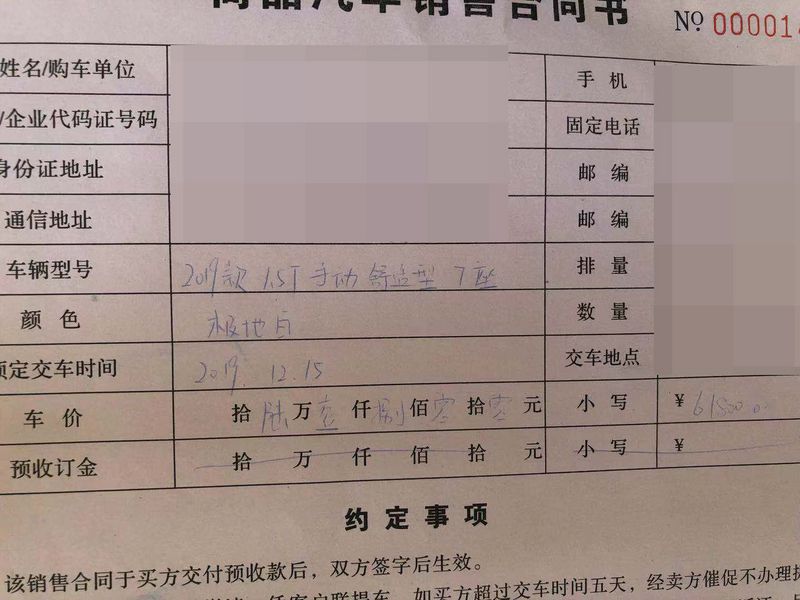 商品汽车销售合同书 No 00001
姓名/购车单位 手机
/企业代码证号码 固定电话
身份证地址 邮编
通信地址 邮编
车辆型号 2019款 1.5T 手动 舒适型 7座 排量
颜色 极地白 数量
预定交车时间 2019. 12. 15 交车地点
车价 拾 陆 万 仟 佰 零 拾 零 元 小写 ¥
预收订金 拾 万 仟 佰 拾 元 小写 ¥
约定事项
该销售合同于买方交付预收款后，双方签字后生效。
如买方超过交车时间五天，经卖方催促不办理